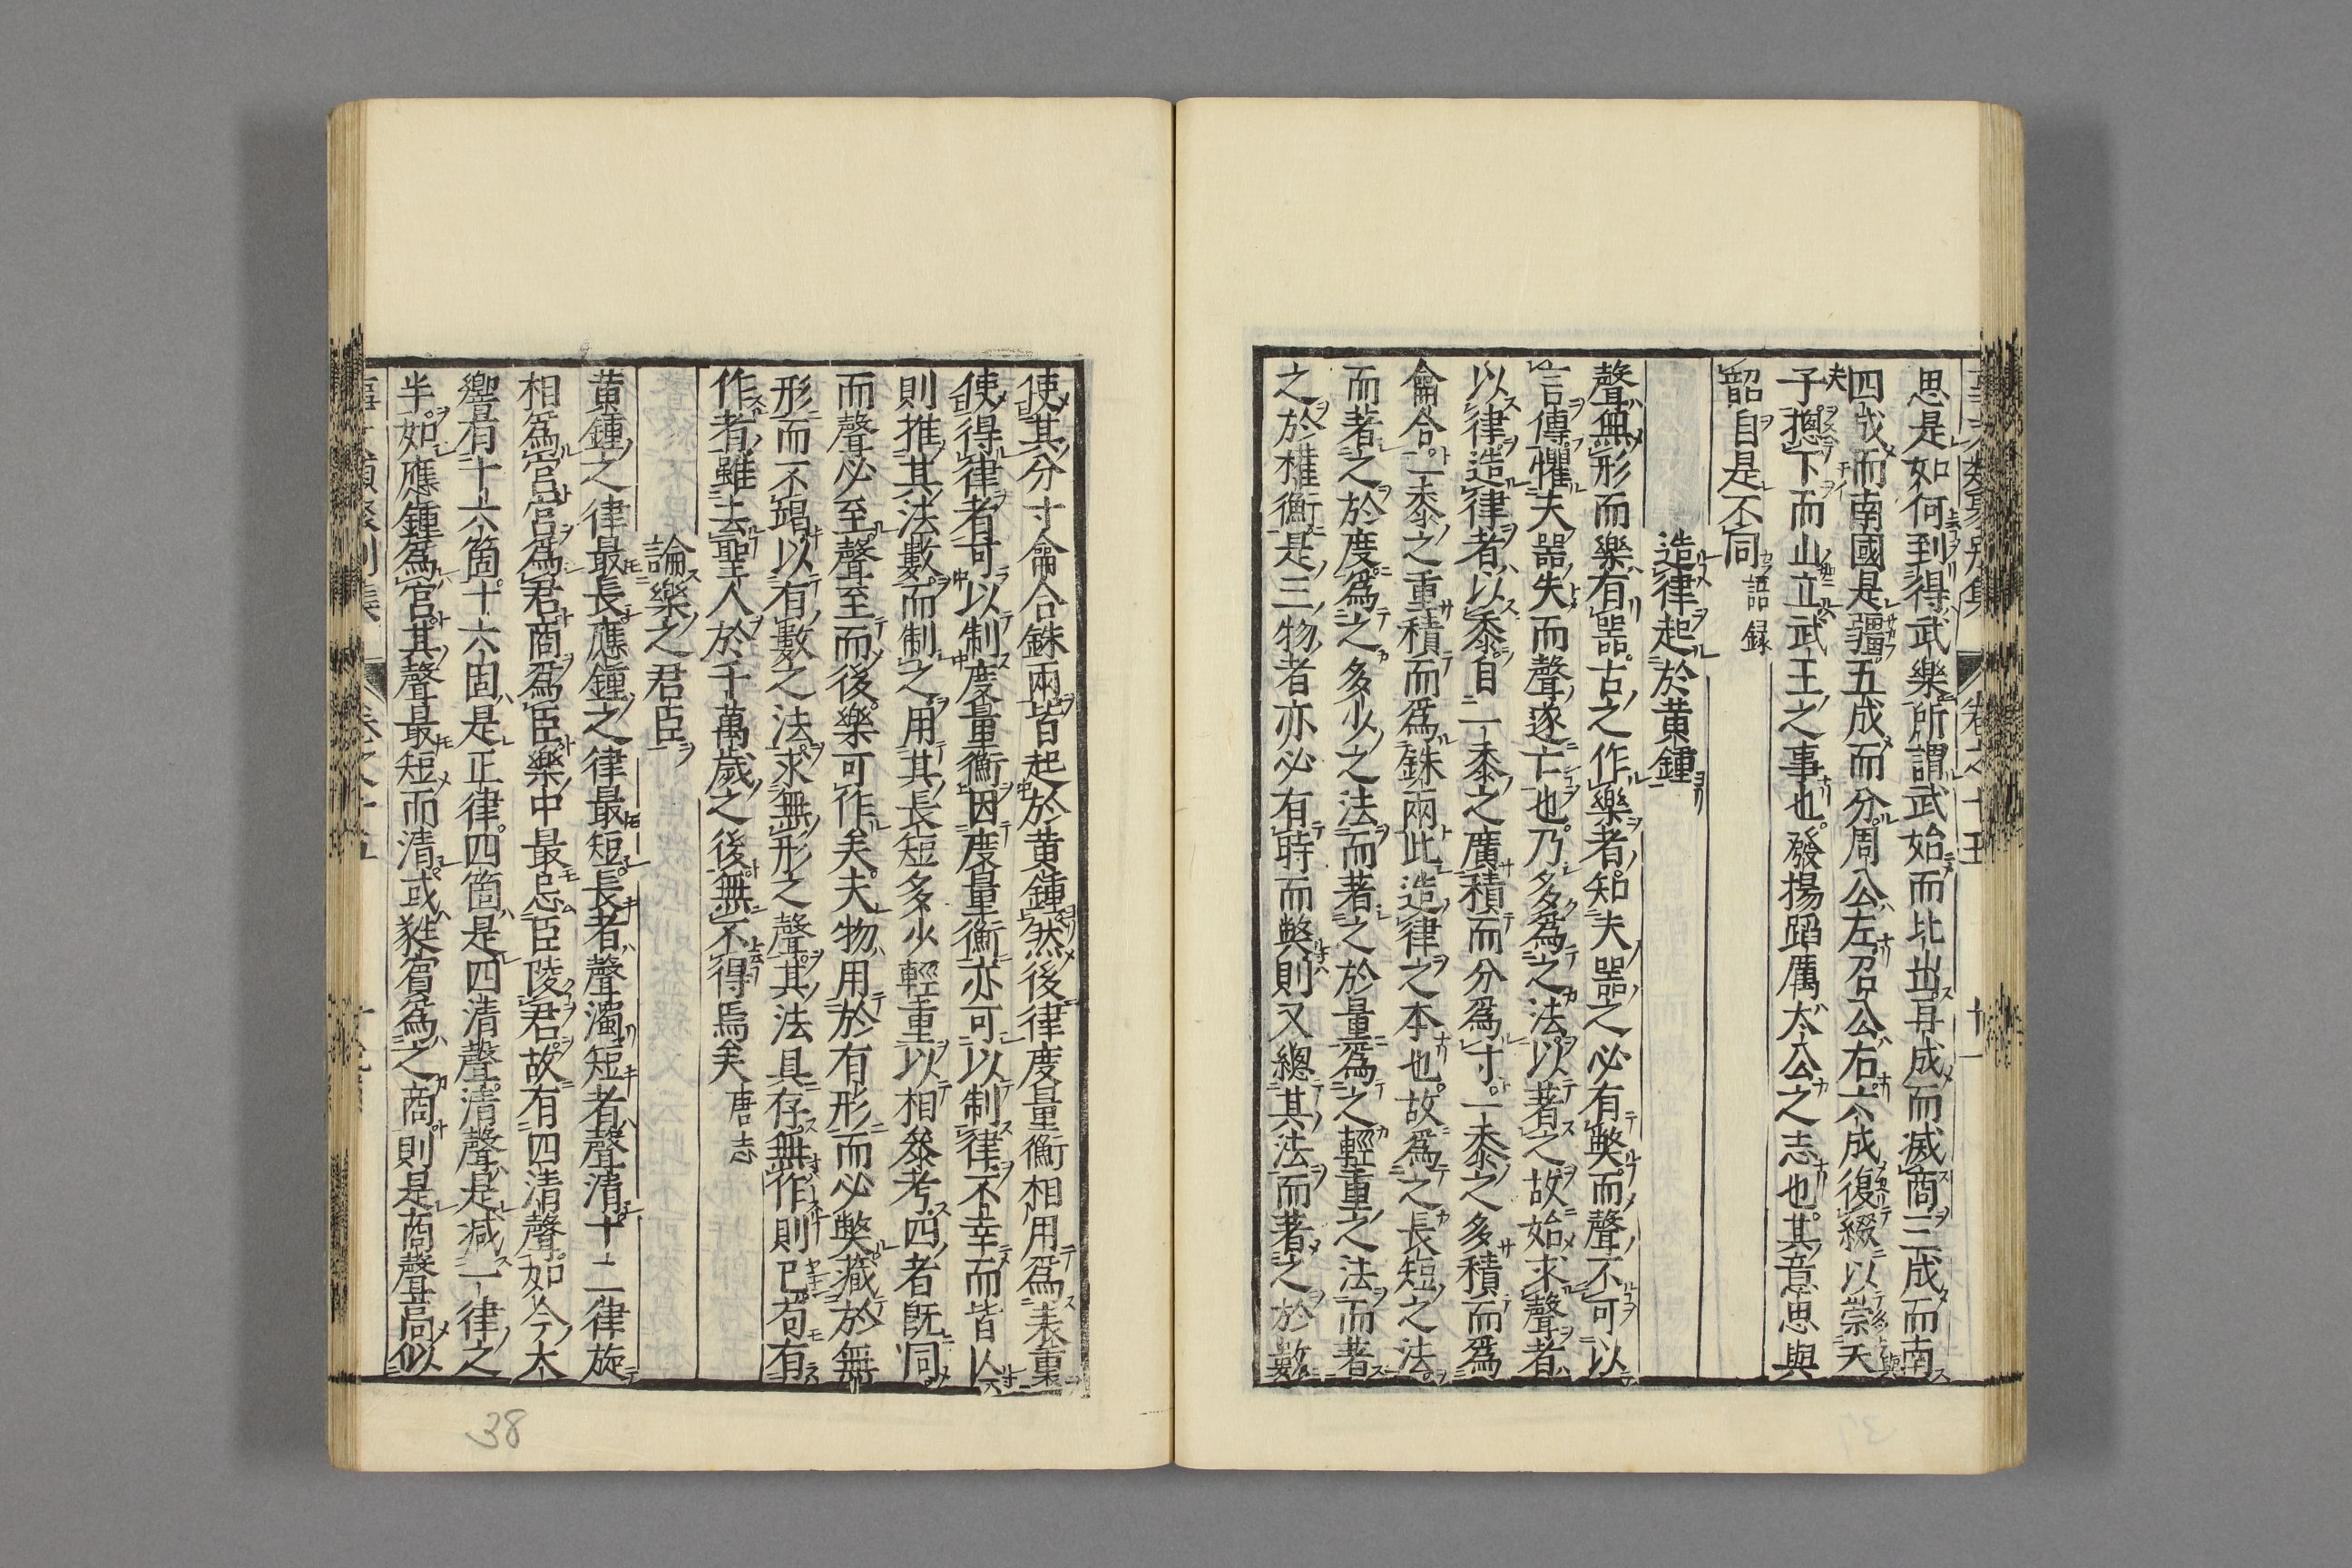 思是如何到得武樂所謂武始而北出再成而滅商三成而南
四成而南國是疆五成而分周公左召公右六成復綴以崇天
子夫揔下而山立武王之事也發揚蹈厲太公之志也其意思與
韶自是不同語録
造律起於黄鍾
聲無形而樂有噐古之作樂者知夫噐之必有弊而聲不可以
言傳懼夫噐失而聲遂亡也乃多爲之法以著之故始求聲者
以律造律者以黍自一黍之廣積而分爲寸一黍之多積而爲
龠合一黍之重積而爲銖兩此造律之本也故爲之長短之法
而著之於度爲之多少之法而著之於量爲之輕重之法而著
之於權衡是三物者亦必有時而弊則又總其法而著之於數
使其分寸龠合銖兩皆起於黄鍾然後律度量衡相用爲表裏
使得律者可以制度量衡因度量衡亦可以制律不幸而皆亾
則推其法數而制之用其長短多少輕重以相叅考四者旣同
而聲必至聲至而後樂可作矣夫物用於有形而必弊藏於無
形而不竭以有數之法求無形之聲其法具存無作則已苟有
作者雖去聖人於千萬歲之後無不得焉矣唐志
論樂之君臣
黄鍾之律最長應鍾之律最短長者聲濁短者聲清十二律旋
相爲宮宮爲君商爲臣樂中最忌臣陵君故有四清聲如今太
響有十六箇十六固是正律四箇是四清聲清聲是减一律之
半如應鍾爲宮其聲最短而清或㽔賔爲之商則是商聲高似